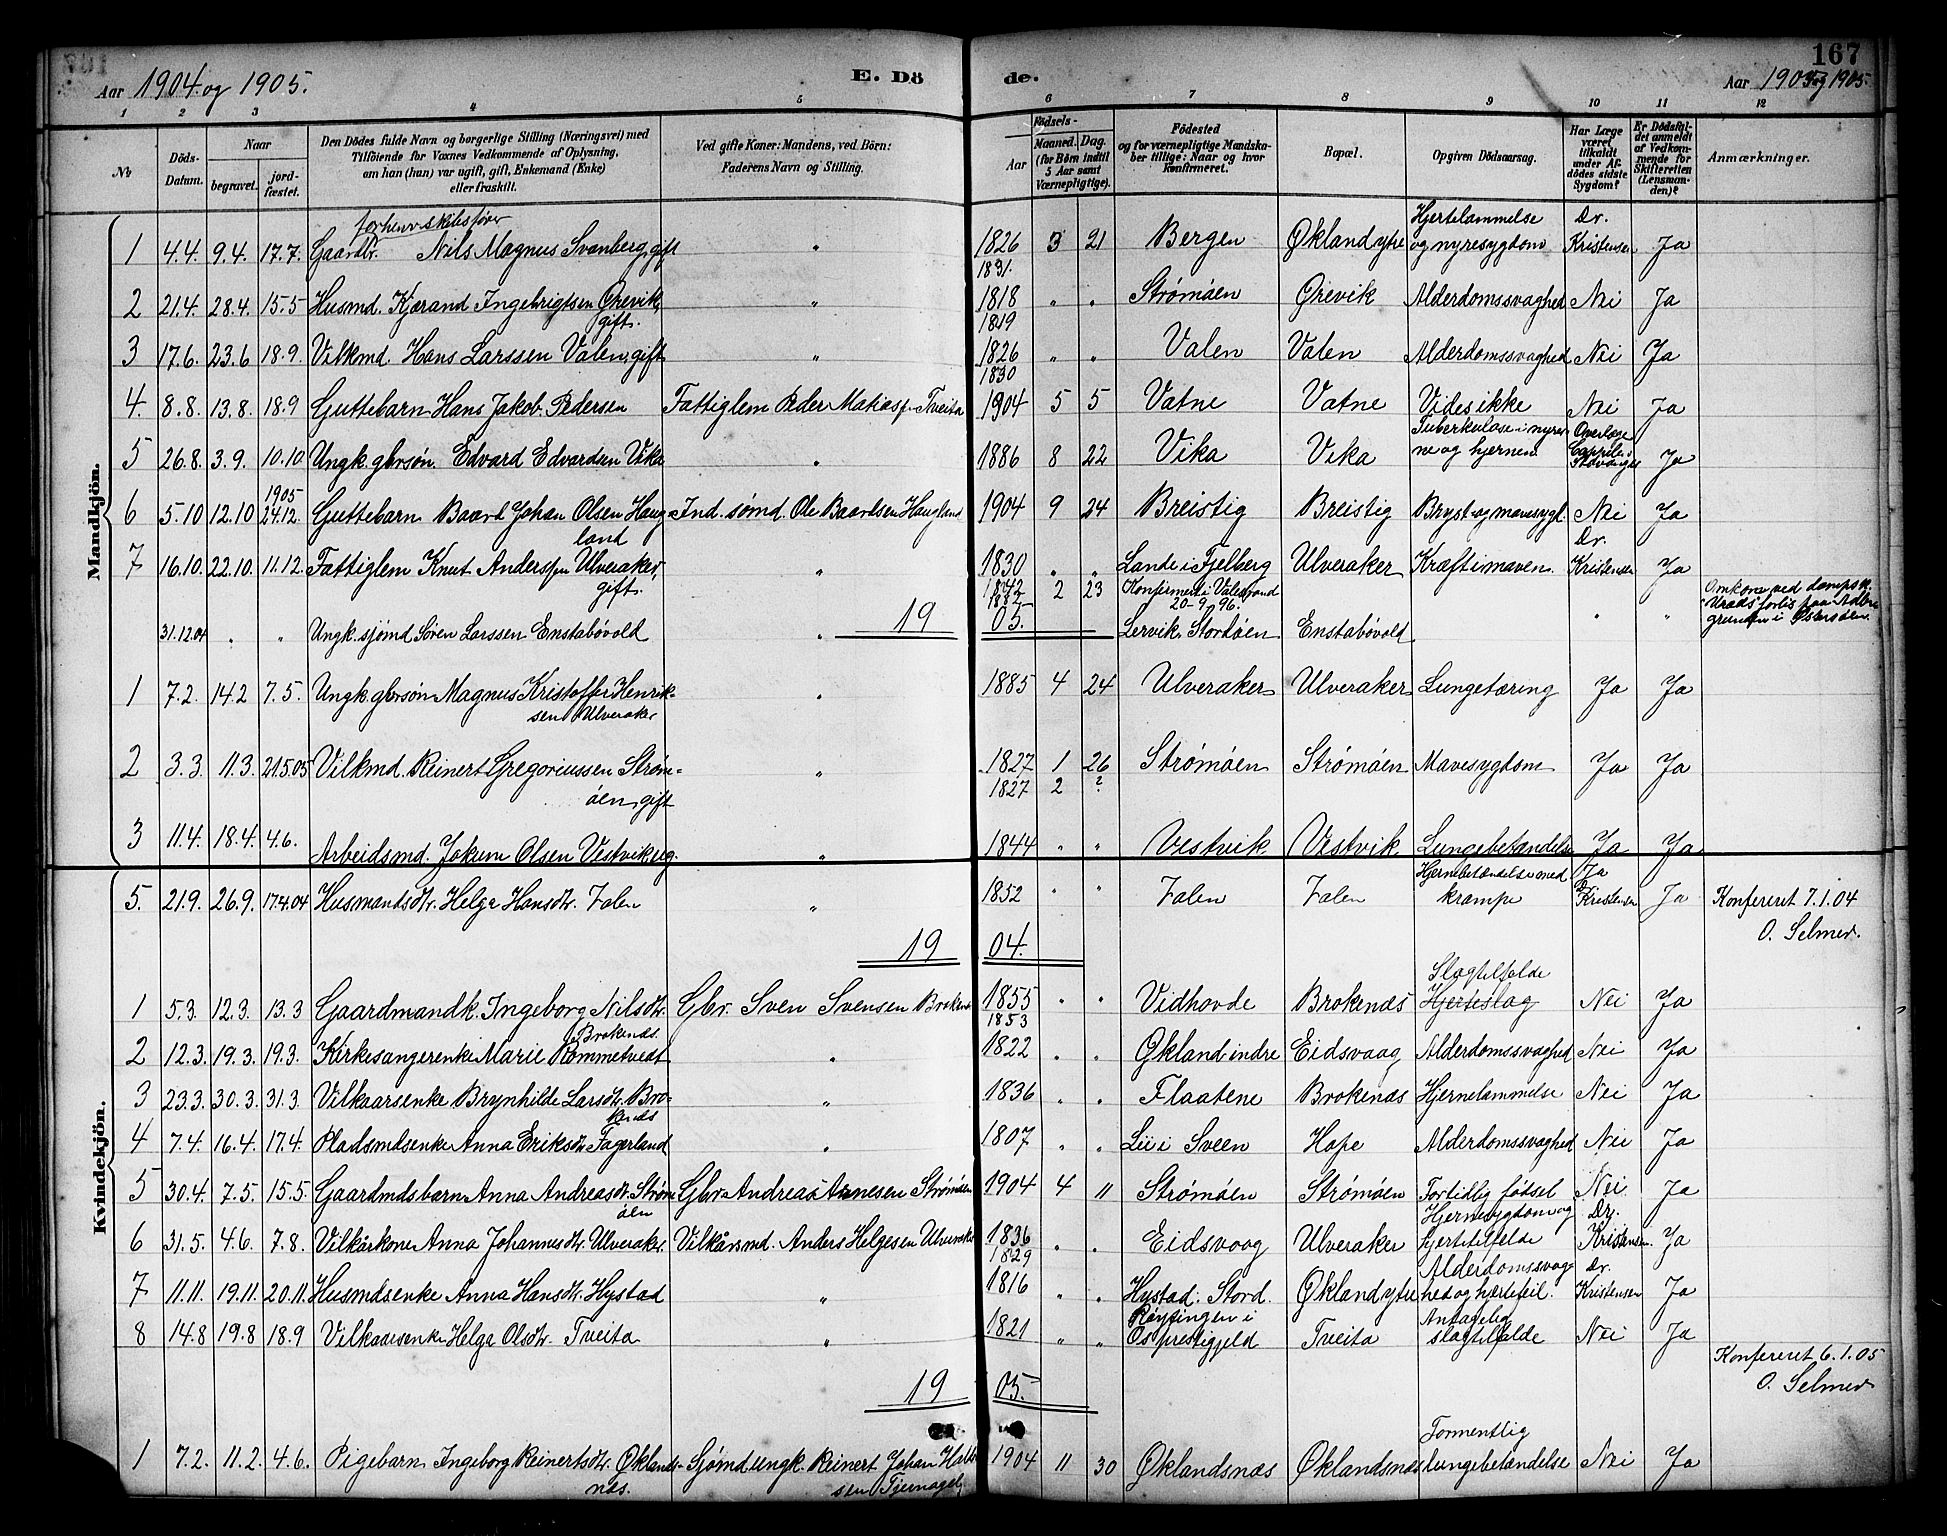 167
Aar 1904 og 1905.
E. Dö
de.
Aar 1904 og 1905.
1 2 3 4 5 6 7 8 9 10 11 12
No
Döds-Datum.
Naar
begravet.
jord-fæstet.
Den Dödes fulde Navn og borgerlige Stilling (Næringsvei) med
Tilföiende for Voxnes Vedkommende af Oplysning,
om han (hun) var ugift, gift, Enkemand (Enke)
eller fraskilt.
Ved gifte Koner: Mandens, ved Börn:
Faderens Navn og Stilling.
Födsels-
Aar
Maaned. Dag.
(for Börn indtil
5 Aar samt
Værnepligtige).
Födested
og for værnepligtige Mandska-
ber tillige: Naar og hvor
konfirmeret.
Bopæl.
Opgiven Dödsaarsag.
Har Læge
været
tilkaldt
under Af-
dødes sidste
Sygdom?
Er Dödsfal-
det anmeldt
af Vedkom-
mende for
Skifteretten
(Lensman-
den)?
Anmærkninger.
Mandkjön.
forhenv. skibsfører
Hjertelammelse Dr.
1 4.4. 9.4. 17.7. Gaardbr. Nils Magnus Svanberg, gift " 1826 3 21 Bergen Økland ytre og nyresygdom Kristensen Ja
1831.
2 21.4. 28.4. 15.5 Husmd. Kjærand Ingebrigtsen Ørevik, " 1818 " " Strømøen Ørevik Alderdomssvaghed Nei Ja
gift.
1819
3 17.6. 23.6 18.9. Vilkmd. Hans Larssen Valen, gift " 1826 " " Valen Valen Alderdomssvaghed Nei Ja
1830
4. 8.8. 13.8. 18.9 Guttebarn Hans Jakob Pedersen Fattiglem Peder Matiass. Tveita 1904 5 5 Vatne Vatne Vides ikke Nei Ja
Tuberkulose i nyrer Overlæge
5 26.8. 3.9. 10.10 Ungk. gbrsøn. Edvard Edvardsen Vika " 1886 8 22 Vika Vika ne og hjernen Cappelen Ja
Stavanger
1905
6 5.10 12.10 24.12. Guttebarn Baard Johan Olsen Haug- Ind. sømd. Ole Baardsen Haugland 1904 9 24 Breistig Breistig Bryst og mavesygd. Nei Ja
land
Dr.
7 16.10. 22.10. 11.12. Fattiglem Knut Anderssen Ulveraker, " 1830 " " Lande i Fjelberg Ulveraker Kræft i maven. Kristensen Ja
gift.
1842 2 23 Konfirmert i Valestrand
20-9. 96.
Omkom ved dampsk.
19 05.
31.12.04 " " Ungk. sjømd Søren Larssen Enstabøvold " Lervik Stordøen Enstabøvold " "
grunden i Østersøen.
1 7.2. 14.2 7.5. Ungk. gbrsøn Magnus Kristoffer Henrik- " 1885 4 24 Ulveraker Ulveraker Lungetæring Ja Ja
sen Ulveraker
2 3.3. 11.3. 21.5.05 Vilkmd. Reinert Gregoriussen Strøm- " 1827 1 26 Strømøen Strømøen Mavesygdom Ja Ja
øen, gift
1827 2 ?
3 11.4. 18.4. 4.6. Arbeidsmd. Jokum Olsen Vestvik ug. " 1844 " " Vestvik. Vestvik. Lungebetændelse Ja Ja
Kvindekjön.
Hjernebetændelse med Ja
5. 21.9. 26.9. 17.4.04 Husmandsdtr. Helga Hansdtr. Valen " 1852 " " Valen Valen krampe Kristensen Ja Konfereret 7.1.04
O. Selmer.
19 04.
Slagtilfælde
1 5.3. 12.3. 13.3 Gaardmandk. Ingeborg Nilsdtr. Gbr. Sven Svensen Brokenæs 1855 " " Vidhovde Brokenæs Hjerteslag Nei Ja
Brokenæs.
1853
2 12.3. 19.3. 19.3. Kirkesangerenke Marie Rommetvedt " 1822 " " Økland indre Eidsvaag Alderdomssvaghed Nei Ja
3 23.3. 30.3. 31.3. Vilkaarsenke Brynhilde Larsdtr. Bro- " 1836 " " Flaatene Brokenæs Hjernelammelse Nei Ja
kenæs
4 7.4. 16.4. 17.4. Pladsmdsenke Anna Eriksdtr. Fagerland " 1807 " " Lii i Sveen Hope Alderdomssvaghed Nei Ja
5 30.4. 7.5. 15.5. Gaardmdsbarn Anna Andreasdtr. Strøm- Gbr. Andreas Arnesen Strømøen 1904 4 11 Strømøen Strømøen Fortidlig fødsel Nei Ja
øen
Hjernesygdom og Dr.
6 31.5. 4.6. 7.8. Vilkårkone Anna Johannesdtr. Ulveraker. Vilkårsmd. Anders Helgesen Ulveraker 1836 " " Eidsvaag Ulveraker hjertetilfælde Kristensen. Ja
1829
Alderdomssvag- Dr.
7 11.11. 19.11. 20.11. Husmdsenke Anna Hansdtr. Hystad " 1816 " " Hystad. Stord. Økland ytre hed og hjertefeil. Kristensen Ja
Antagelig
8 14.8 19.8 18.9 Vilkaarsenke Helga Olsdtr. Tveita " 1821 " " Os prestegjeld Tveita slagtilfælde Nei Ja
Konfereret 6.1.05
O. Selmer
19 05.
Formentlig
1 7.2. 11.2. 4.6. Pigebarn Ingeborg Reinertsdtr. Øklands- Sjømd ungk. Reinert Johan 1904 11 30 Øklandsnæs Øklandsnæs Lungebetændelse Nei Ja
næs.